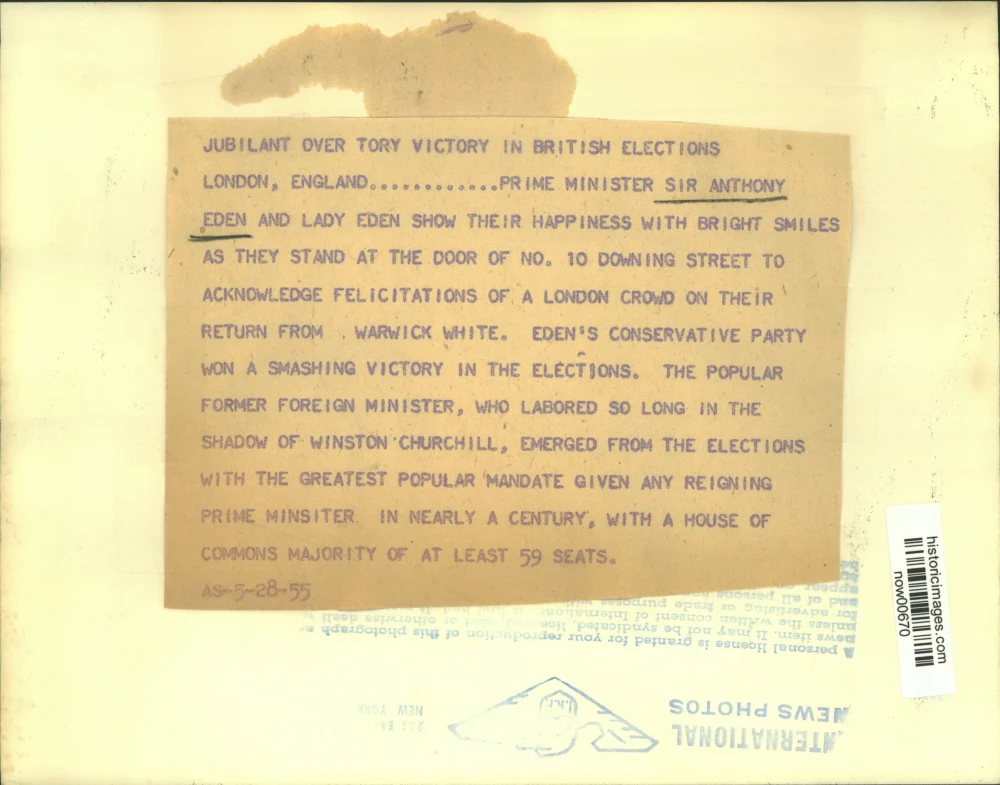 JUBILANT OVER TORY VICTORY IN BRITISH ELECTIONS
LONDON, ENGLAND............PRIME MINISTER SIR ANTHONY
EDEN AND LADY EDEN SHOW THEIR HAPPINESS WITH BRIGHT SMILES
AS THEY STAND AT THE DOOR OF NO. 10 DOWNING STREET TO
ACKNOWLEDGE FELICITATIONS OF A LONDON CROWD ON THEIR
RETURN FROM . WARWICK WHITE. EDEN'S CONSERVATIVE PARTY
WON A SMASHING VICTORY IN THE ELECTIONS. THE POPULAR
FORMER FOREIGN MINISTER, WHO LABORED SO LONG IN THE
SHADOW OF WINSTON CHURCHILL, EMERGED FROM THE ELECTIONS
WITH THE GREATEST POPULAR MANDATE GIVEN ANY REIGNING
PRIME MINSITER IN NEARLY A CENTURY, WITH A HOUSE OF
COMMONS MAJORITY OF AT LEAST 59 SEATS.
AS-5-28-55
historicimages.com
now00670
INTERNATIONAL
NEWS PHOTOS
I.N.P.
NEW YORK
A personal license is granted for your reproduction of this photograph
news item. It may not be syndicated, or otherwise
unless the written consent of International
for advertising or trade purposes
and of all persons
appear